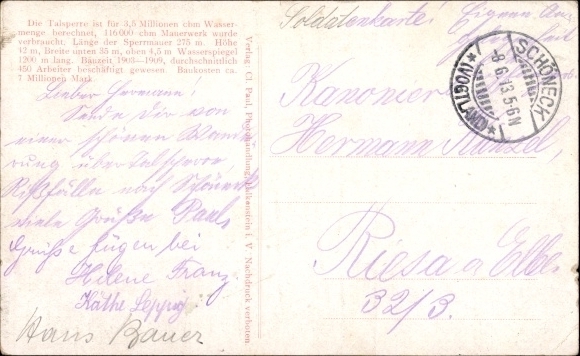 Die Talsperre ist für 3,5 Millionen cbm Wasser-
menge berechnet, 116 000 cbm Mauerwerk wurde
verbraucht; Länge der Sperrmauer 275 m. Höhe
42 m, Breite unten 35 m, oben 4,5 m Wasserspiegel
1200 m lang. Bauzeit 1903—1909, durchschnittlich
450 Arbeiter beschäftigt gewesen. Baukosten ca.
Millionen Mark
Lieber Hermann!
Sende Dir von
einer schönen Wande
rung
nach Schöneck
viele Grüße Paul
Grüße fügen bei
Helene Franz
Käthe
Hans Bauer
Verlag: Cl. Paul, Photohandlung Falkenstein i. V. Nachdruck verboten
Soldatenkarte! Eigene An-
SCHÖNECK
(VOGTLAND)
-8.6.13.5-6N
Kanonier
Hermann
Riesa a Elbe
32/3.